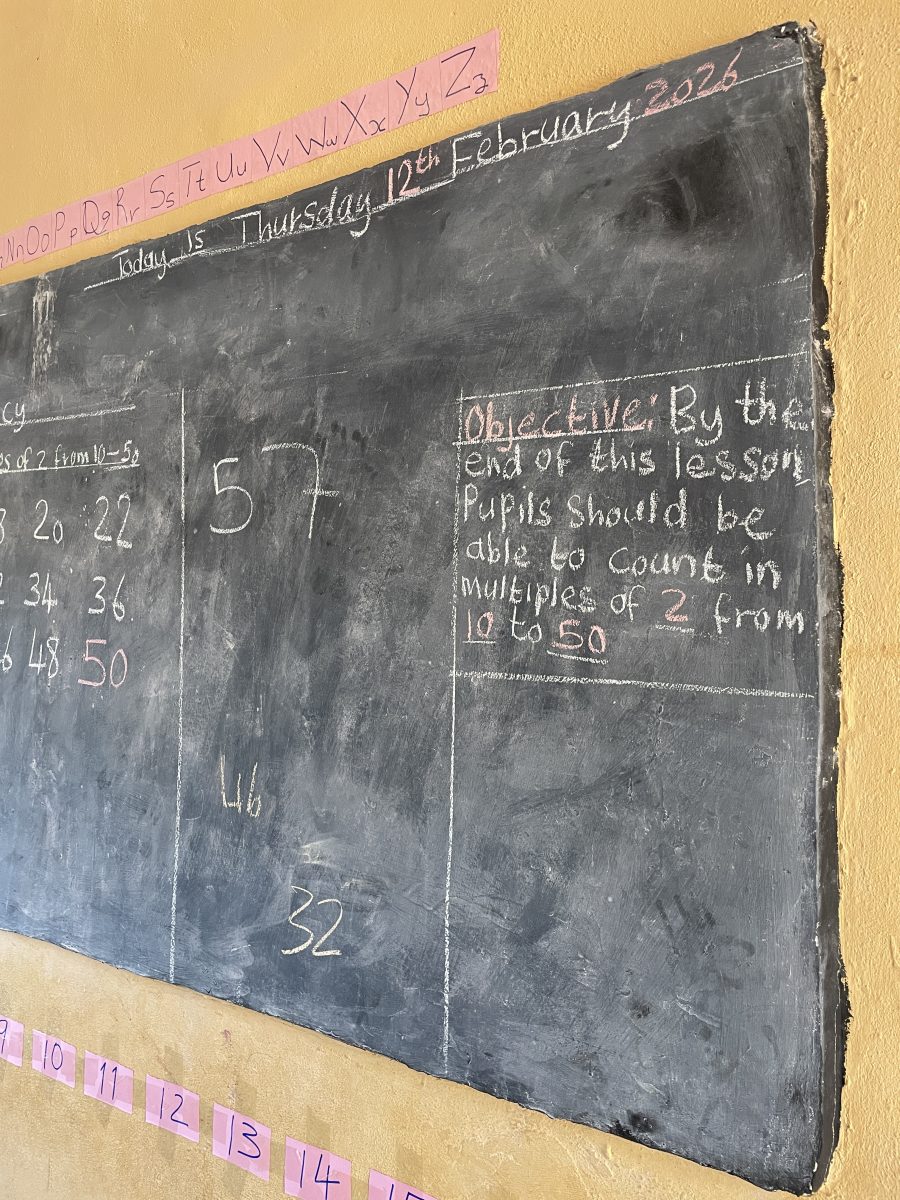 Nn Oo Pp Qq Rr Ss Tt Uu Vv Ww Xx Yy Zz
Today Is Thursday 12th February 2026
of 2 from 10-50
20 22
34 36
48 50
57
46
32
Objective: By the
end of this lesson,
Pupils should be
able to count in
multiples of 2 from
10 to 50
9 10 11 12 13 14 15